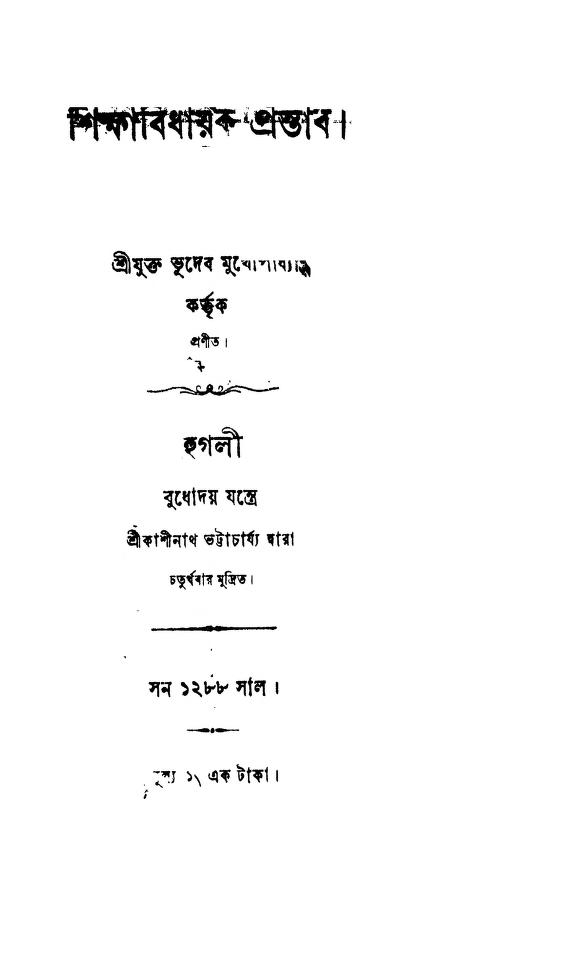 শিক্ষাবিধায়ক প্রস্তাব।
শ্রীযুক্ত ভূদেব মুখোপাধ্যায়
কর্ত্তৃক
প্রণীত।
হুগলী
বুধোদয় যন্ত্রে
শ্রীকাশীনাথ ভট্টাচার্য্য দ্বারা
চতুর্থবার মুদ্রিত।
সন ১২৮৮ সাল।
মূল্য ১৲ এক টাকা।